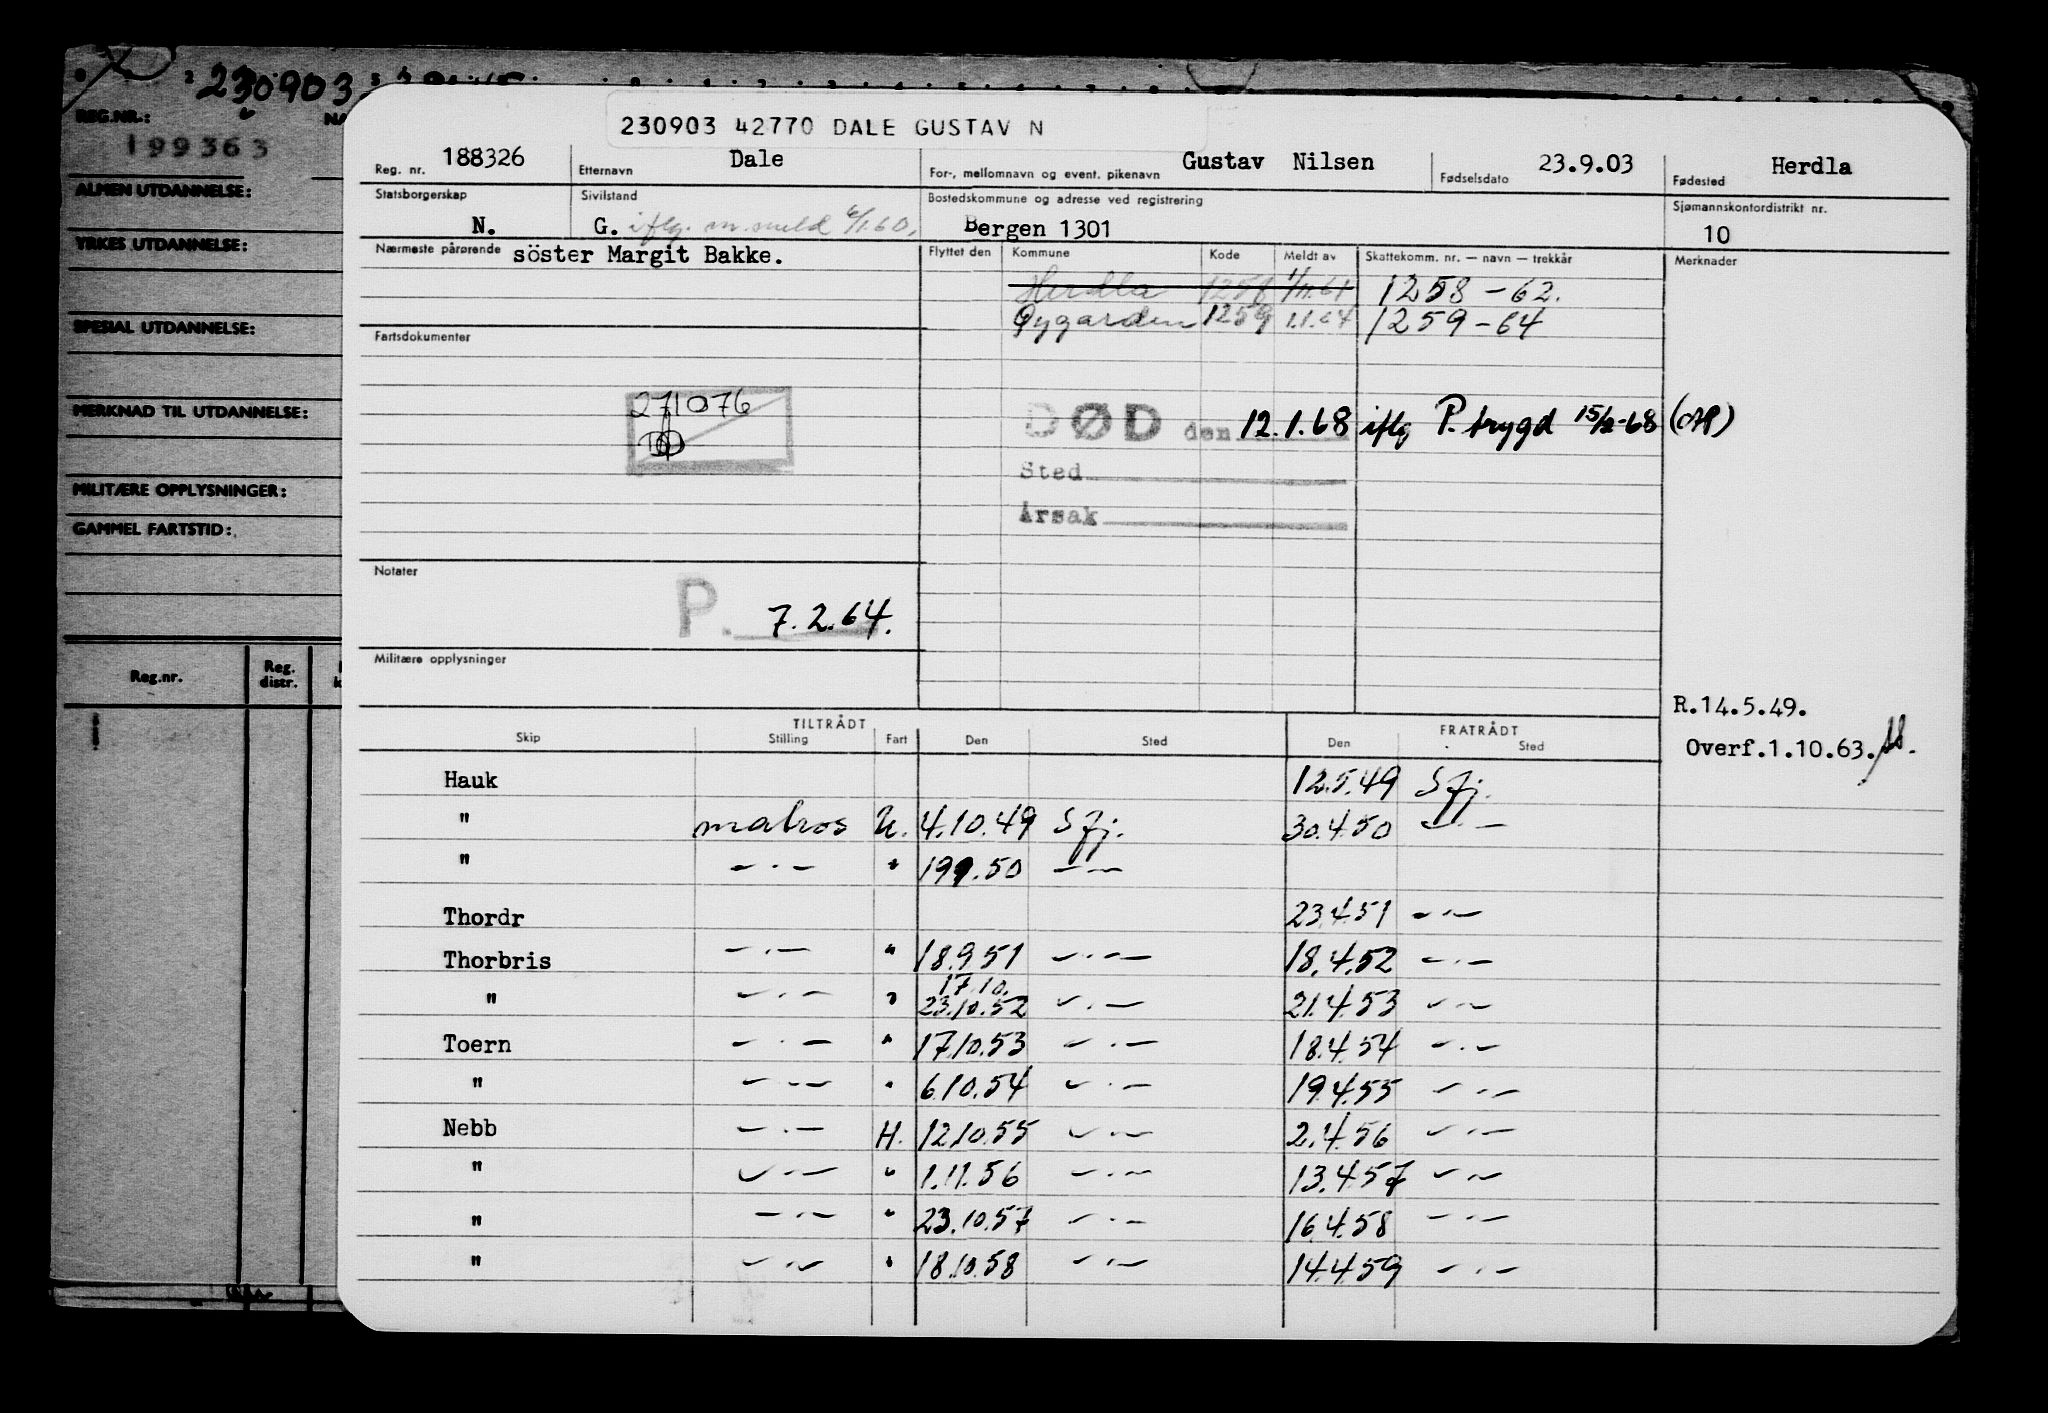 230903
REG.NR.:
199363
ALMEN UTDANNELSE:
YRKES UTDANNELSE:
SPESIAL UTDANNELSE:
MERKNAD TIL UTDANNELSE:
MILITÆRE OPPLYSNINGER:
GAMMEL FARTSTID:
Reg.nr. Reg. distr.
230903 42770 DALE GUSTAV N
Reg. nr. 188326 Etternavn Dale For-, mellomnavn og event. pikenavn Gustav Nilsen Fødselsdato 23.9.03 Fødested Herdla
Statsborgerskap Sivilstand Bostedskommune og adresse ved registrering Sjømannskontordistrikt nr.
N. G. iflg. m.meld 6/1.60. Bergen 1301 10
Nærmeste pårørende söster Margit Bakke. Flyttet den Kommune Kode Meldt av Skattekomm. nr. — navn — trekkår Merknader
Herdla 1258 1/11.61 1258-62.
Øygarden 1259 1.1.64 1259-64
Fartsdokumenter
271076
DØD den 12.1.68 iflg P.trygd 15/2-68
Sted
Årsak
Notater
P. 7.2.64.
Militære opplysninger
R.14.5.49.
Overf.1.10.63.
TILTRÅDT FRATRÅDT
Skip Stilling Fart Den Sted Den Sted
Hauk 12.5.49 Sfj.
" matros U. 4.10.49 Sfj. 30.4.50 —·—
" —·— " 19.9.50 —·—
Thordr 23.4.51 —·—
Thorbris —·— " 18.9.51 —·— 18.4.52 —·—
17.10.
" —·— " 23.10.52 —·— 21.4.53 —·—
Toern —·— " 17.10.53 —·— 18.4.54 —·—
" —·— " 6.10.54 —·— 19.4.55 —·—
Nebb —·— H. 12.10.55 —·— 2.4.56 —·—
" —·— " 1.11.56 —·— 13.4.57 —·—
" —·— " 23.10.57 —·— 16.4.58 —·—
" —·— " 18.10.58 —·— 14.4.59 —·—